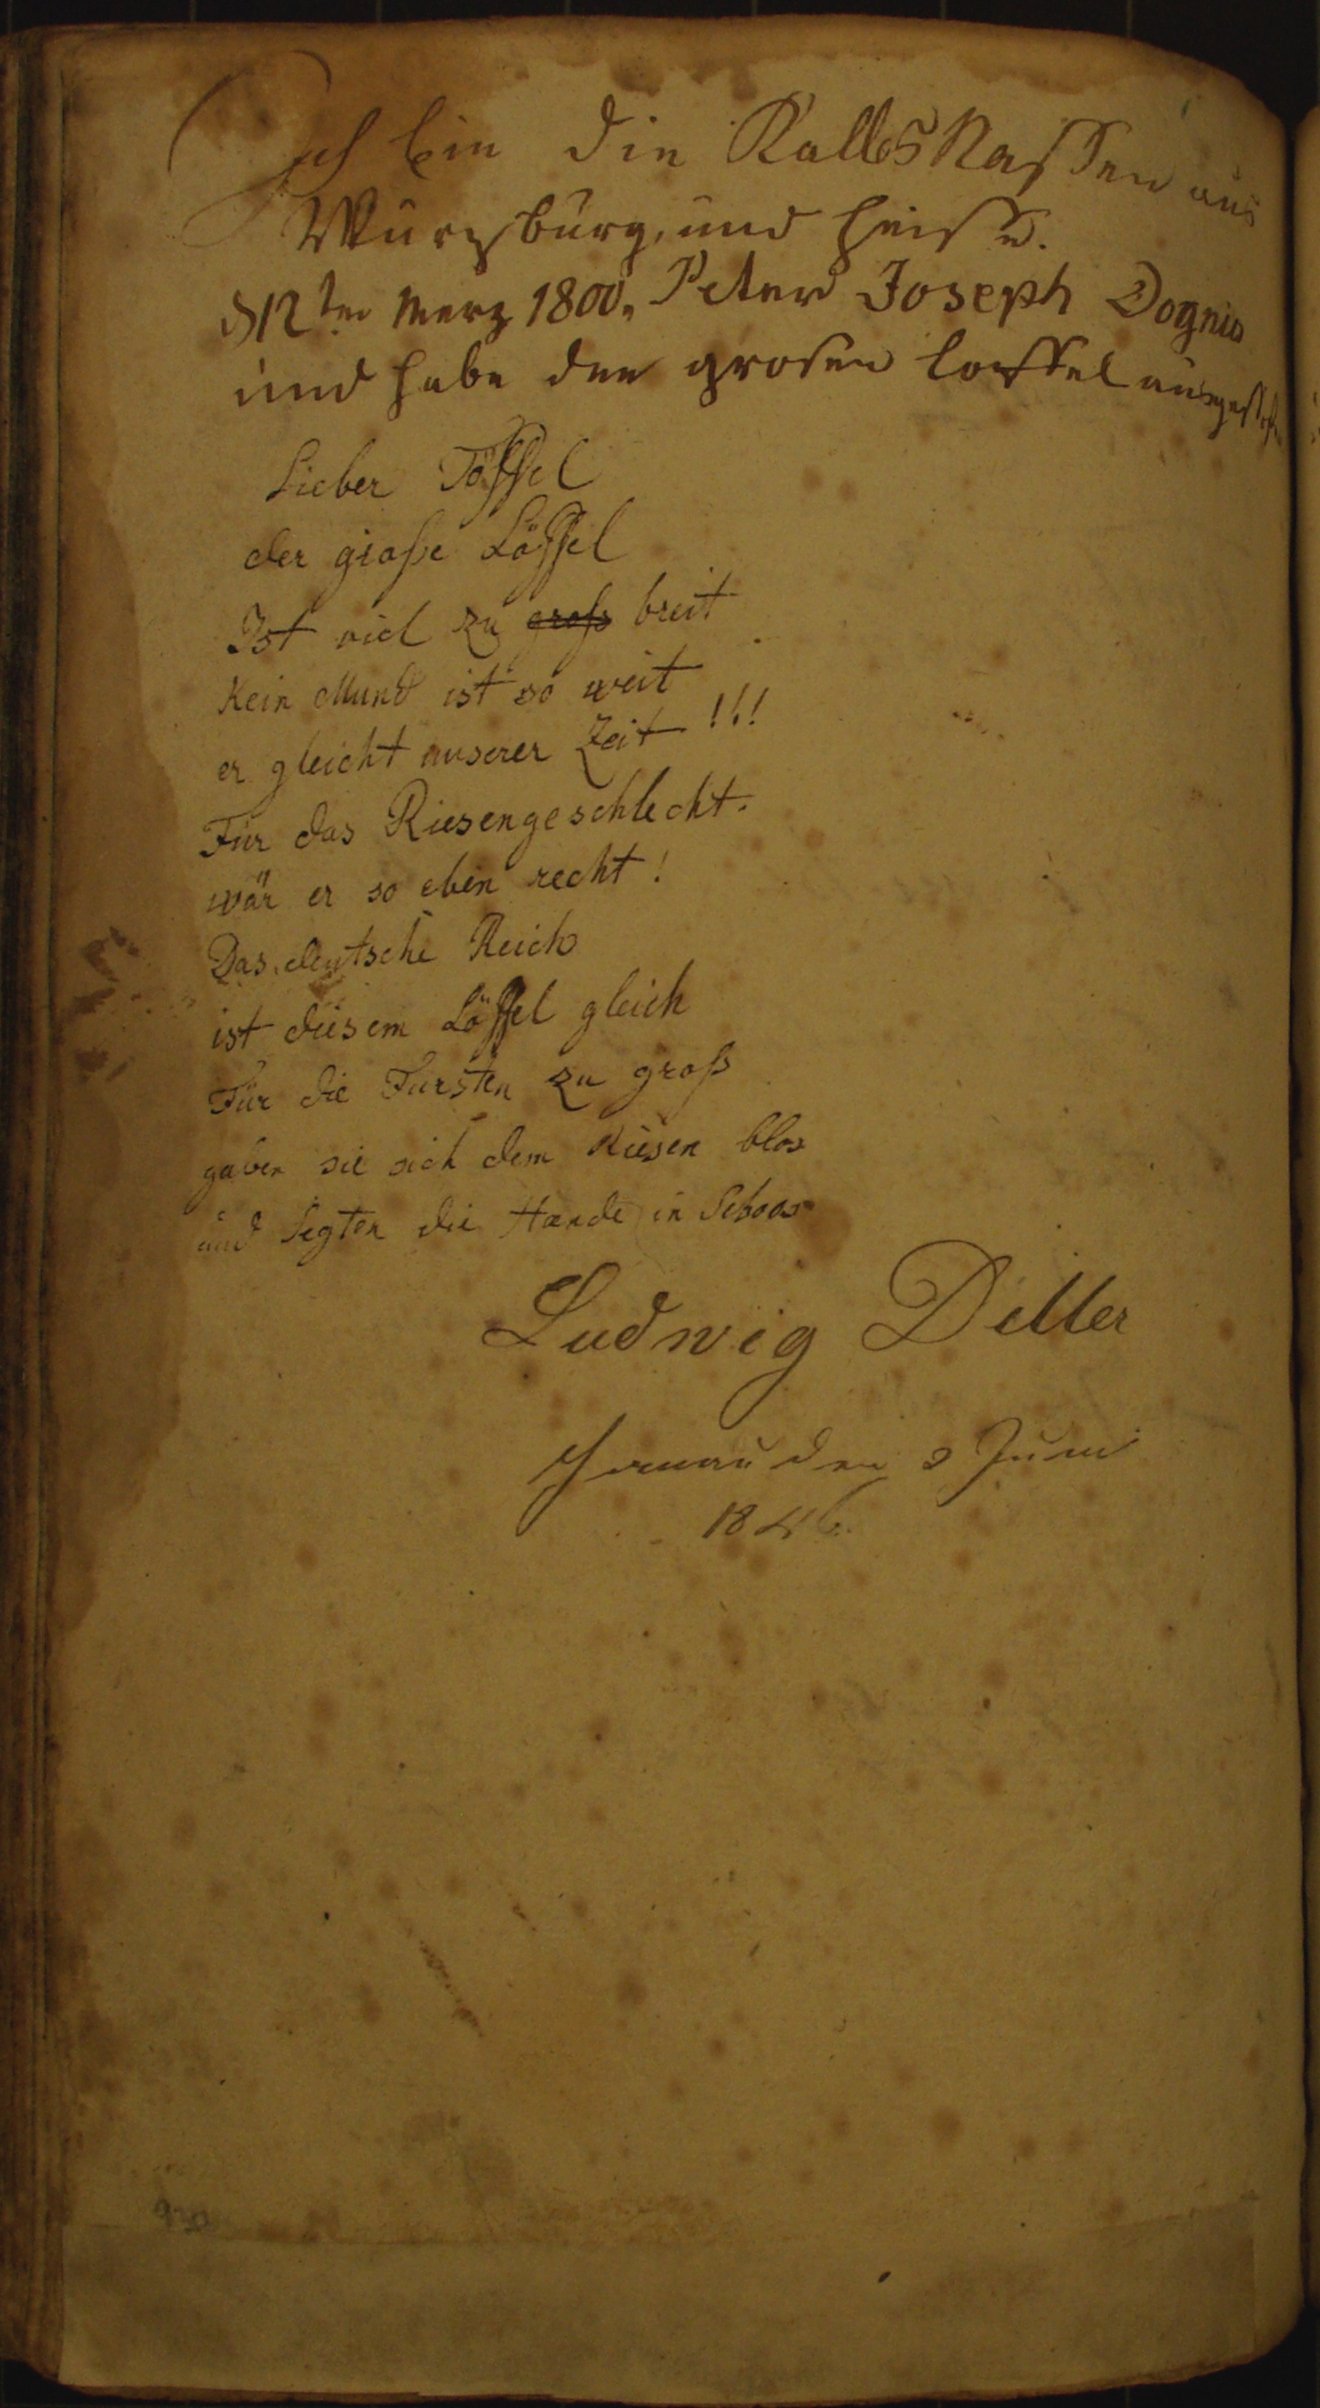 Ich bin die KalbsNassen aus
Wurzburg, und heise.
d 12ten Merz 1800. Peter Joseph Dognis
und habe den grosen loeffel ausgeste
Lieber Töffel
der große Löffel
Ist viel zu groß breit
Kein Mund ist so weit
er gleicht unserer Zeit!!!
Für das Riesengeschlecht.
wär er so eben recht!
Das deutsche Reich
ist diesem Löffel gleich
Für die Fursten zu groß
gaben sie sich dem Riesen blos
und legten die Hande in Schoos
Ludwig Diller
den 3 Juni
1846.